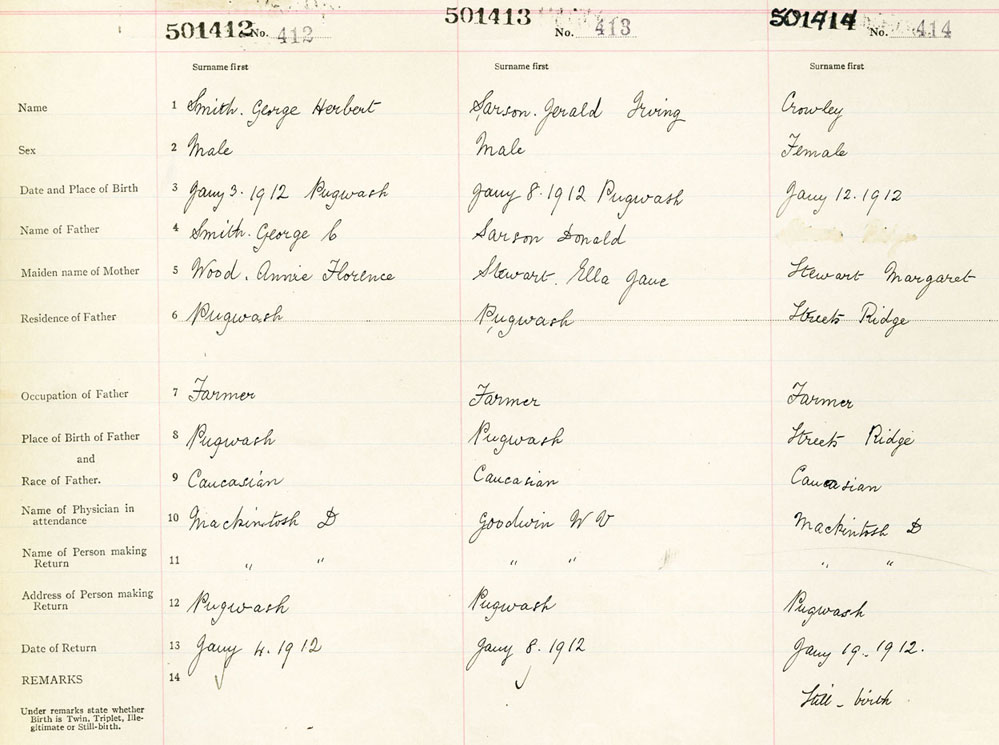 501412 No. 412 501413 No. 413 501414 No. 414
Surname first Surname first Surname first
Name 1 Smith. George Herbert Sarson. Gerald Irving Crowley
Sex 2 Male Male Female
Date and Place of Birth 3 Jany 3. 1912 Pugwash Jany 8. 1912 Pugwash Jany 12. 1912
Name of Father 4 Smith. George C Sarson Donald
Maiden name of Mother 5 Wood. Annie Florence Stewart. Ella Jane Stewart Margaret
Residence of Father 6 Pugwash Pugwash Streets Ridge
Occupation of Father 7 Farmer Farmer Farmer
Place of Birth of Father 8 Pugwash Pugwash Streets Ridge
and
Race of Father. 9 Caucasian Caucasian Caucasian
Name of Physician in
attendance 10 Mackintosh D Goodwin W V Mackintosh D
Name of Person making
Return 11 " " " " " "
Address of Person making
Return 12 Pugwash Pugwash Pugwash
Date of Return 13 Jany 4. 1912 Jany 8. 1912 Jany 19. 1912.
REMARKS 14 Still - birth
Under remarks state whether
Birth is Twin, Triplet, Ille-
gitimate or Still-birth.